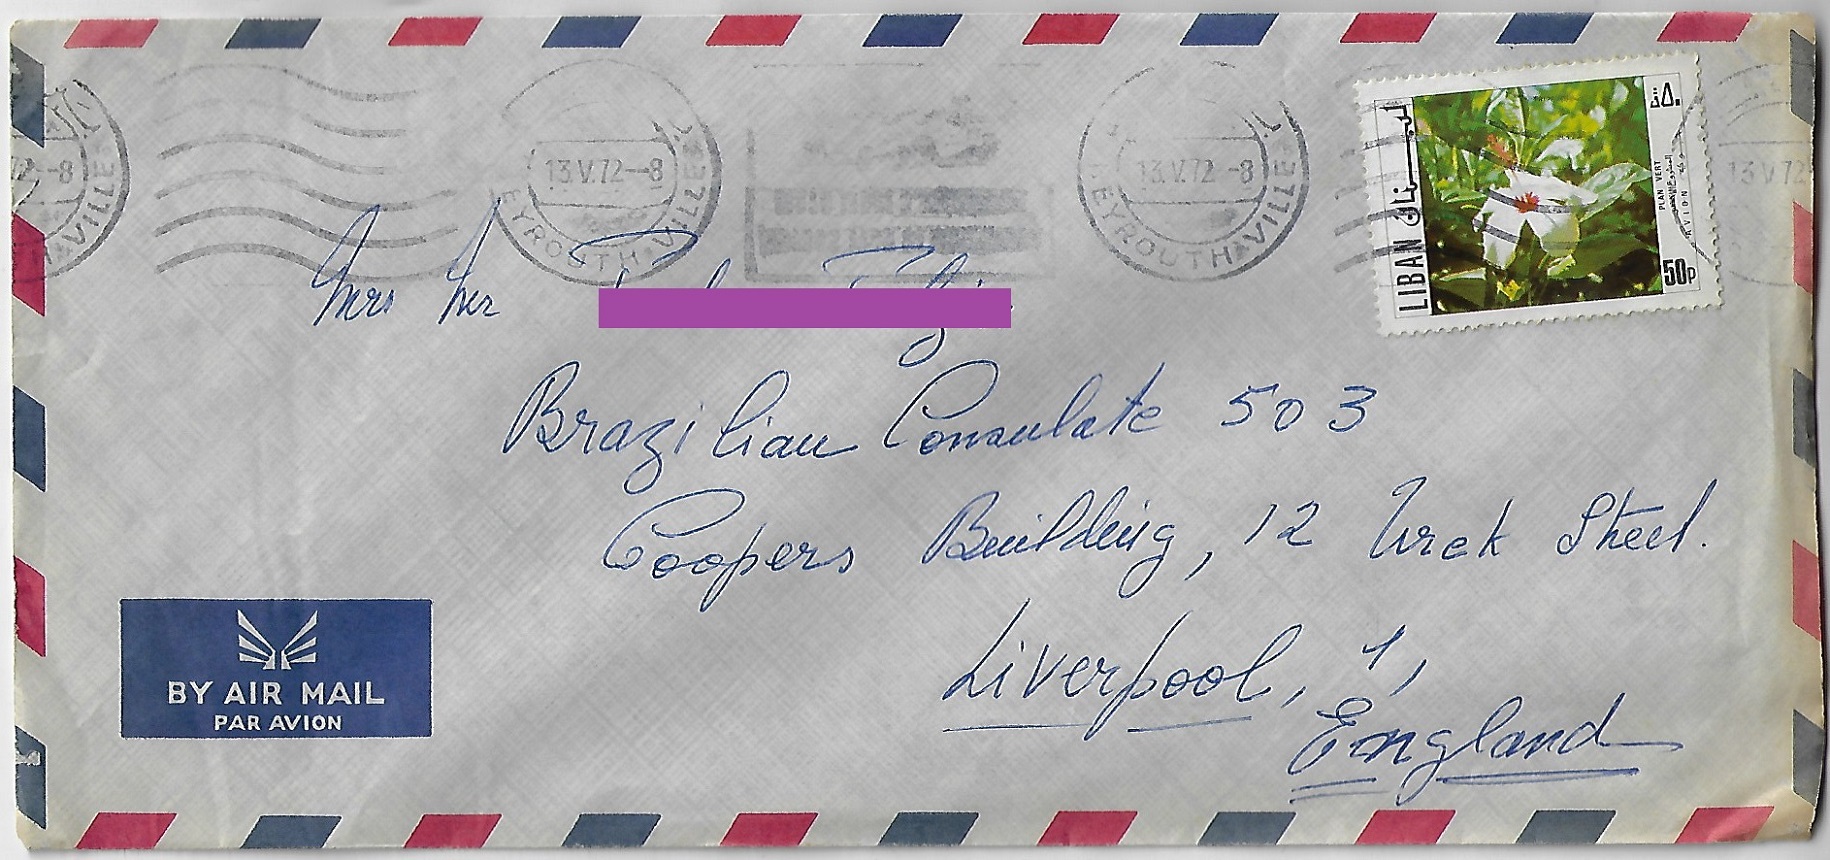 BEYROUTH VILLE
13.V.72-8
EYROUTH VILLE
13.V.72-8
BEYROUTH VILLE
13 V 72
لبنان
LIBAN
٥٠ق
PLAN VERT
AVION
50p
Mrs Mer
Brazilian Consulate 503
Coopers Building, 12
Street.
Liverpool, 1,
England
BY AIR MAIL
PAR AVION